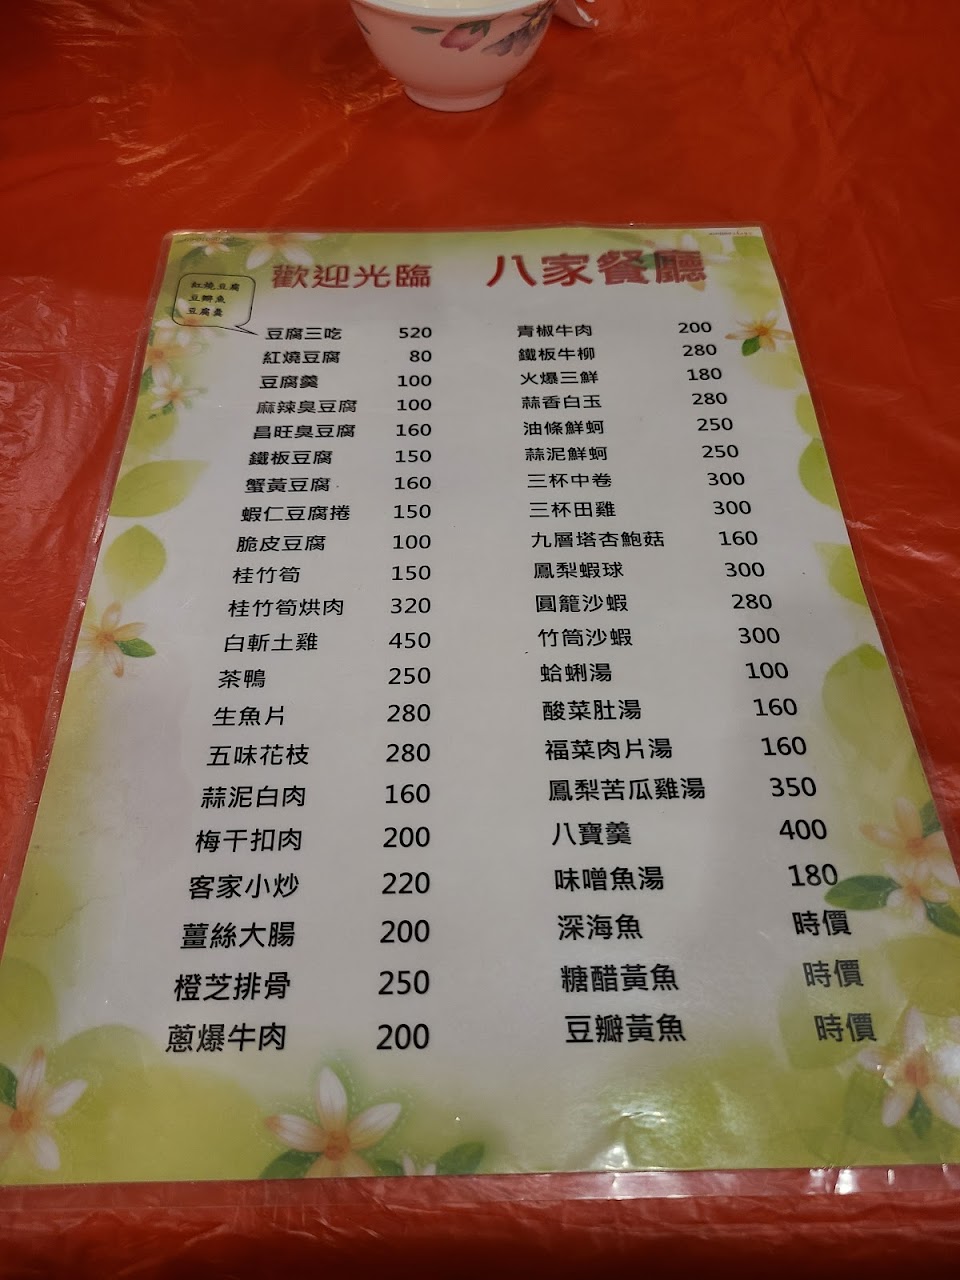 歡迎光臨 八家餐廳
紅燒豆腐
豆瓣魚
豆腐羹
豆腐三吃 520
紅燒豆腐 80
豆腐羹 100
麻辣臭豆腐 100
昌旺臭豆腐 160
鐵板豆腐 150
蟹黃豆腐 160
蝦仁豆腐捲 150
脆皮豆腐 100
桂竹筍 150
桂竹筍烘肉 320
白斬土雞 450
茶鴨 250
生魚片 280
五味花枝 280
蒜泥白肉 160
梅干扣肉 200
客家小炒 220
薑絲大腸 200
橙芝排骨 250
蔥爆牛肉 200
青椒牛肉 200
鐵板牛柳 280
火爆三鮮 180
蒜香白玉 280
油條鮮蚵 250
蒜泥鮮蚵 250
三杯中卷 300
三杯田雞 300
九層塔杏鮑菇 160
鳳梨蝦球 300
圓籠沙蝦 280
竹筒沙蝦 300
蛤蜊湯 100
酸菜肚湯 160
福菜肉片湯 160
鳳梨苦瓜雞湯 350
八寶羹 400
味噌魚湯 180
深海魚 時價
糖醋黃魚 時價
豆瓣黃魚 時價